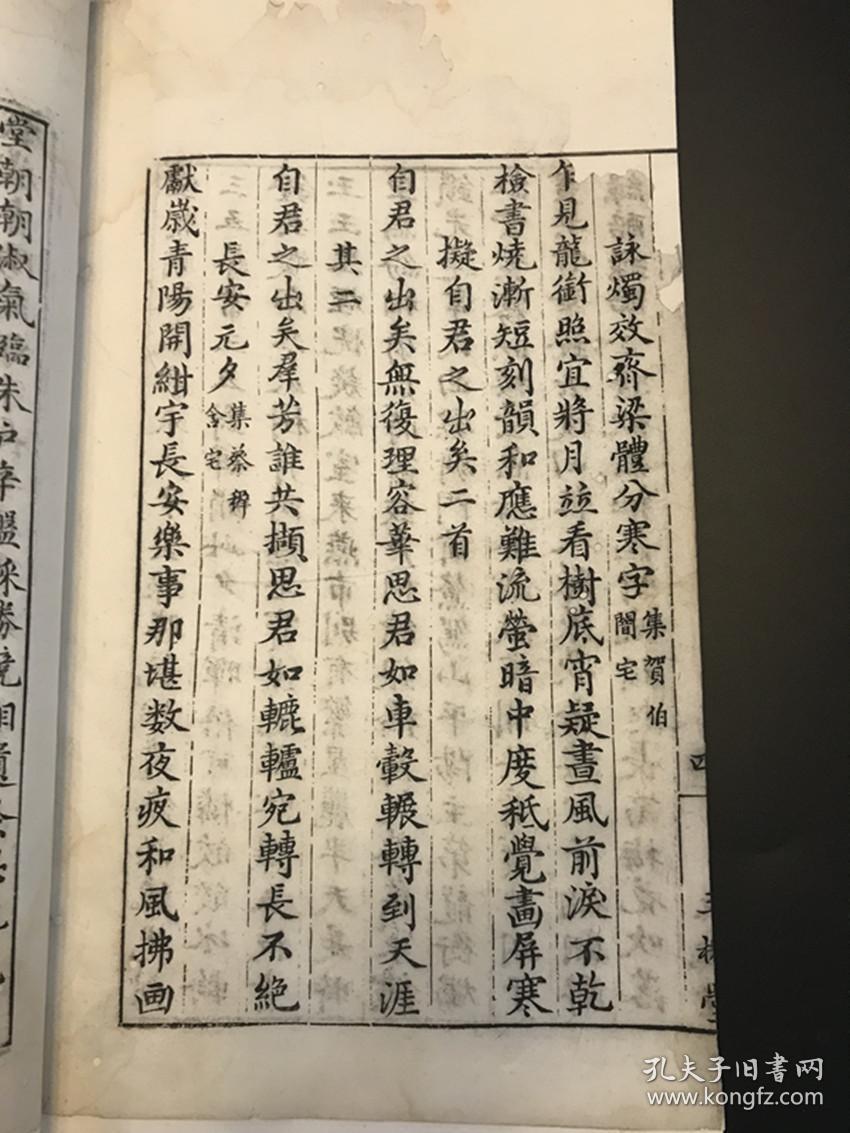 詠燭效齊梁體分寒字集賀伯
闇宅
乍見龍銜照宜將月並看樹底宵疑晝風前淚不乾
檢書燒漸短刻韻和應難流螢暗中度秖覺畫屏寒
擬自君之出矣二首
自君之出矣無復理容華思君如車轂輾轉到天涯
其二
自君之出矣羣芳誰共擷思君如轆轤宛轉長不絕
長安元夕集蔡稺
含宅
獻歲青陽開紺宇長安樂事那堪数夜疲和風拂画
堂朝朝淑氣臨朱戶辛盤
四
孔夫子旧书网
www.kongfz.com